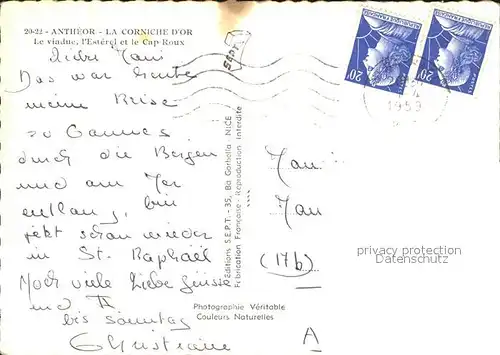 20-22 - ANTHÉOR - LA CORNICHE D'OR
Le viaduc, l'Estérel et le Cap Roux
Das war heute
meine Reise
zu Cannes
durch die Bergen
und am Mer
entlang, bin
jetzt schon wieder
in St. Raphaël
Noch viele liebe Grüsse
und
bis sonntag
Christiane
Editions S.E.P.T. - 35, Bd Gorbella - NICE
Fabrication Française - Reproduction Interdite
SEPT
Photographie Véritable
Couleurs Naturelles
20F
20F
1959
(17b)
A
privacy protection
Datenschutz